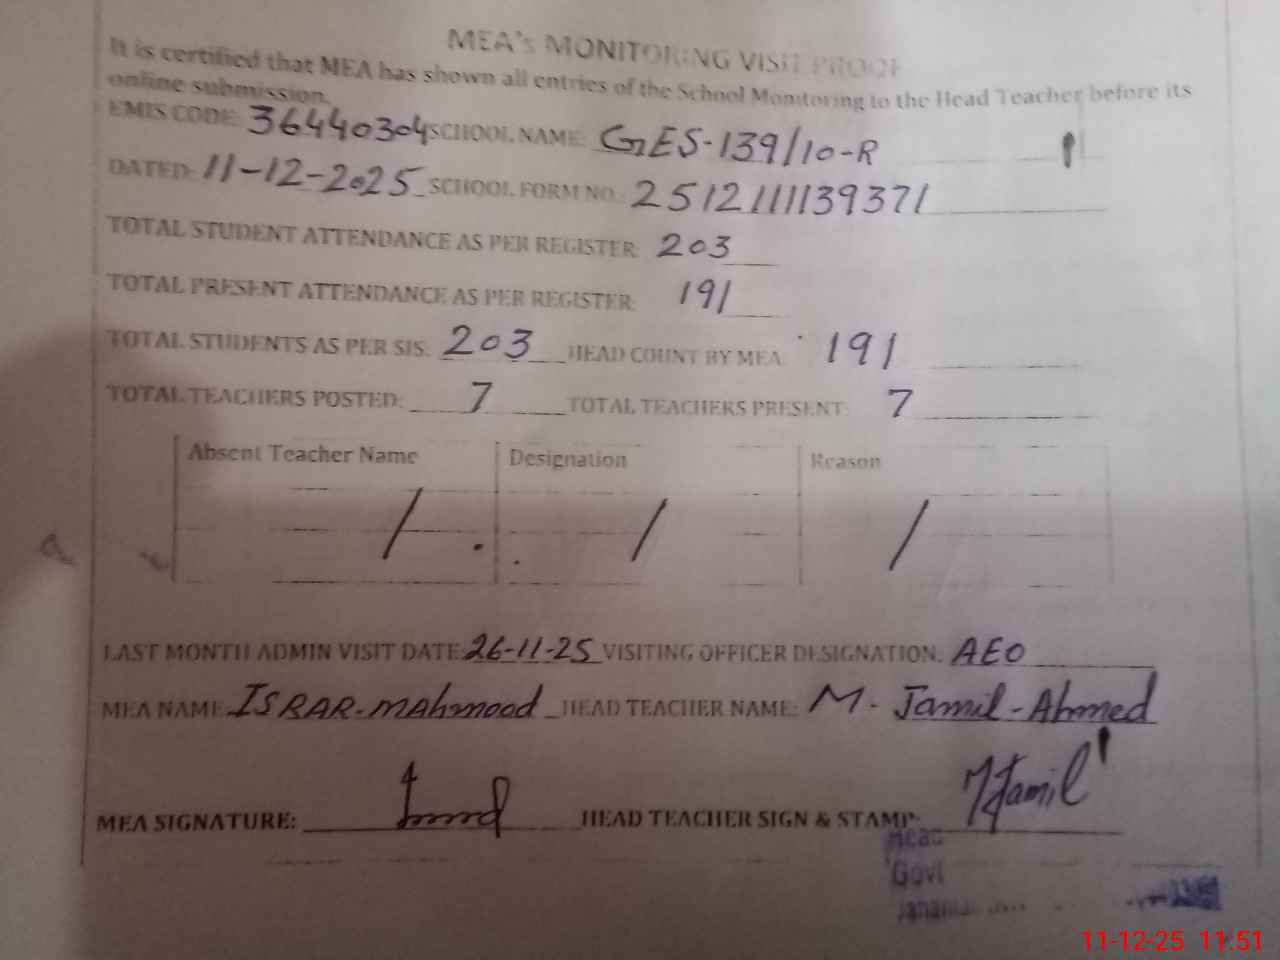 MEA's MONITORING VISIT PROOF
It is certified that MEA has shown all entries of the School Monitoring to the Head Teacher before its
online submission.
EMIS CODE: 36440304 SCHOOL NAME: GES-139/10-R
DATED: 11-12-2025 SCHOOL FORM NO.: 2512111139371
TOTAL STUDENT ATTENDANCE AS PER REGISTER: 203
TOTAL PRESENT ATTENDANCE AS PER REGISTER: 191
TOTAL STUDENTS AS PER SIS: 203 HEAD COUNT BY MEA: 191
TOTAL TEACHERS POSTED: 7 TOTAL TEACHERS PRESENT: 7
Absent Teacher Name Designation Reason
/ / /
LAST MONTH ADMIN VISIT DATE: 26-11-25 VISITING OFFICER DESIGNATION: AEO
MEA NAME: ISRAR-MAhmood HEAD TEACHER NAME: M. Jamil-Ahmed
MEA SIGNATURE: HEAD TEACHER SIGN & STAMP: MJamil
Head
Govt
11-12-25 11:51